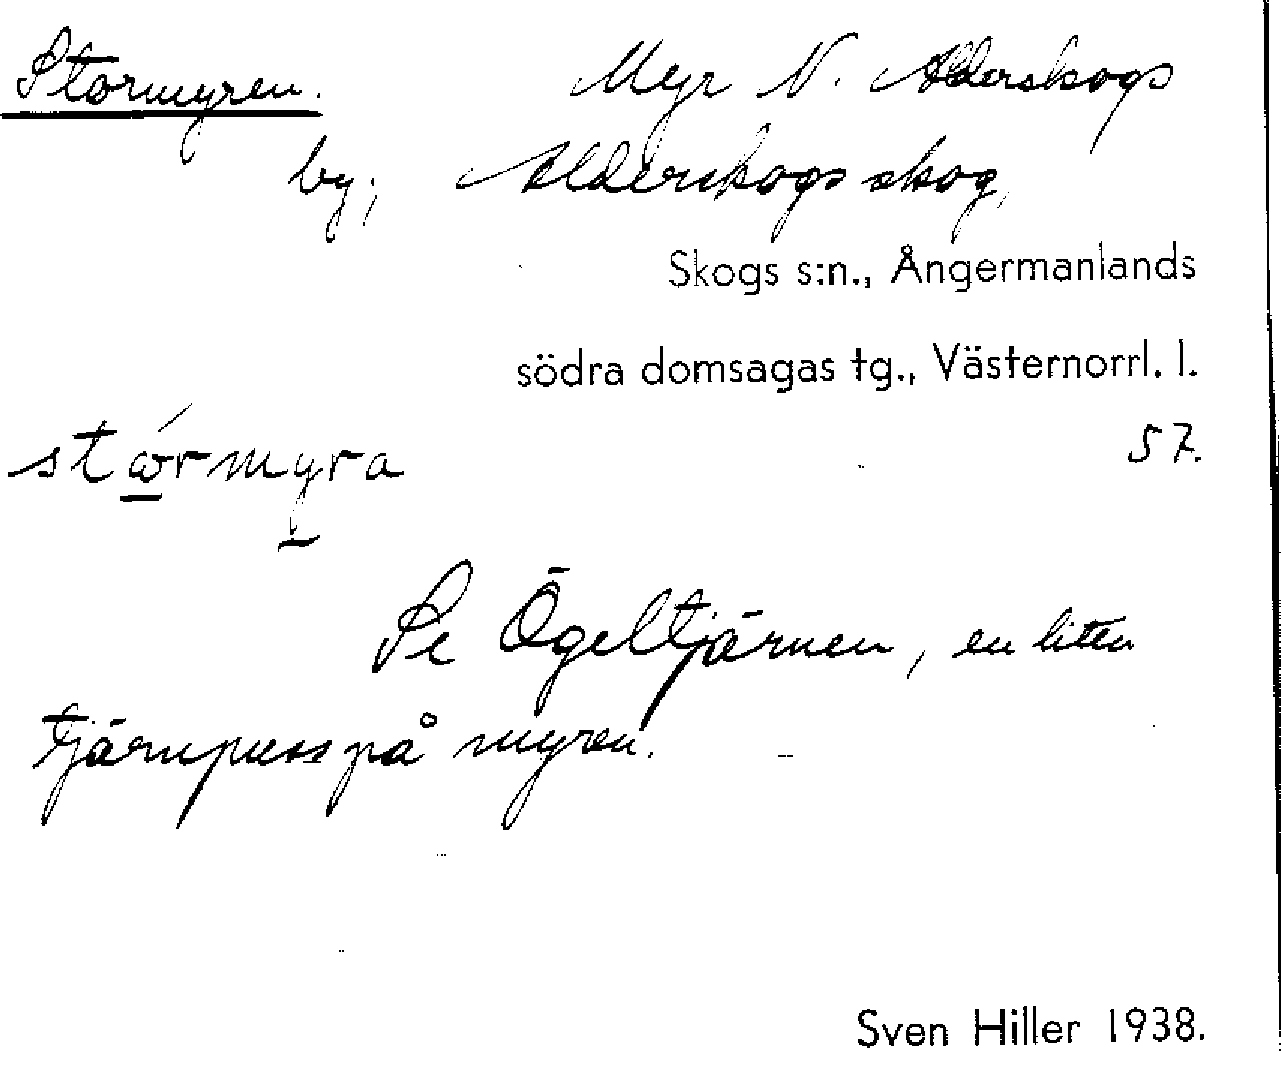 Stormyren. Myr N. Alderskogs
by; Alderskogs skog,
Skogs s:n., Ångermanlands
södra domsagas tg., Västernorrl. l.
stωrmyra 57.
Se Ögeltjärnen, en liten
tjärnpuss på myren.
Sven Hiller 1938.